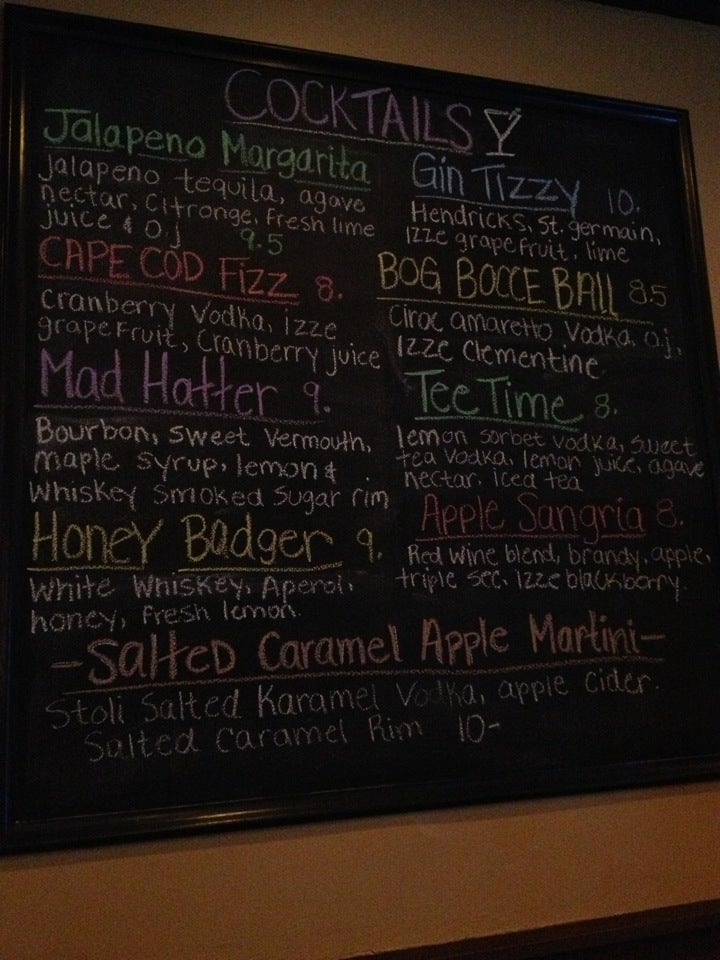 COCKTAILS
Jalapeno Margarita
Jalapeno tequila, agave
nectar, Citronge, fresh lime
juice & O.J
9.5
CAPE COD Fizz 8.
Cranberry Vodka, Izze
grapefruit, Cranberry juice
Mad Hatter 9.
Bourbon, Sweet Vermouth,
maple syrup, lemon &
Whiskey Smoked Sugar rim
Honey Badger 9.
White Whiskey, Aperol,
honey, Fresh lemon
Gin Tizzy 10.
Hendricks, St. germain,
Izze grapefruit, lime
BOG BOCCE BALL 8.5
Ciroc amaretto Vodka, O.J,
Izze Clementine
Tee Time 8.
lemon sorbet vodka, sweet
tea Vodka, lemon juice, agave
nectar, iced tea
Apple Sangria 8.
Red wine blend, brandy, apple,
triple sec, Izze blackberry.
-Salted Caramel Apple Martini-
Stoli Salted Karamel Vodka, apple cider.
Salted Caramel Rim 10-